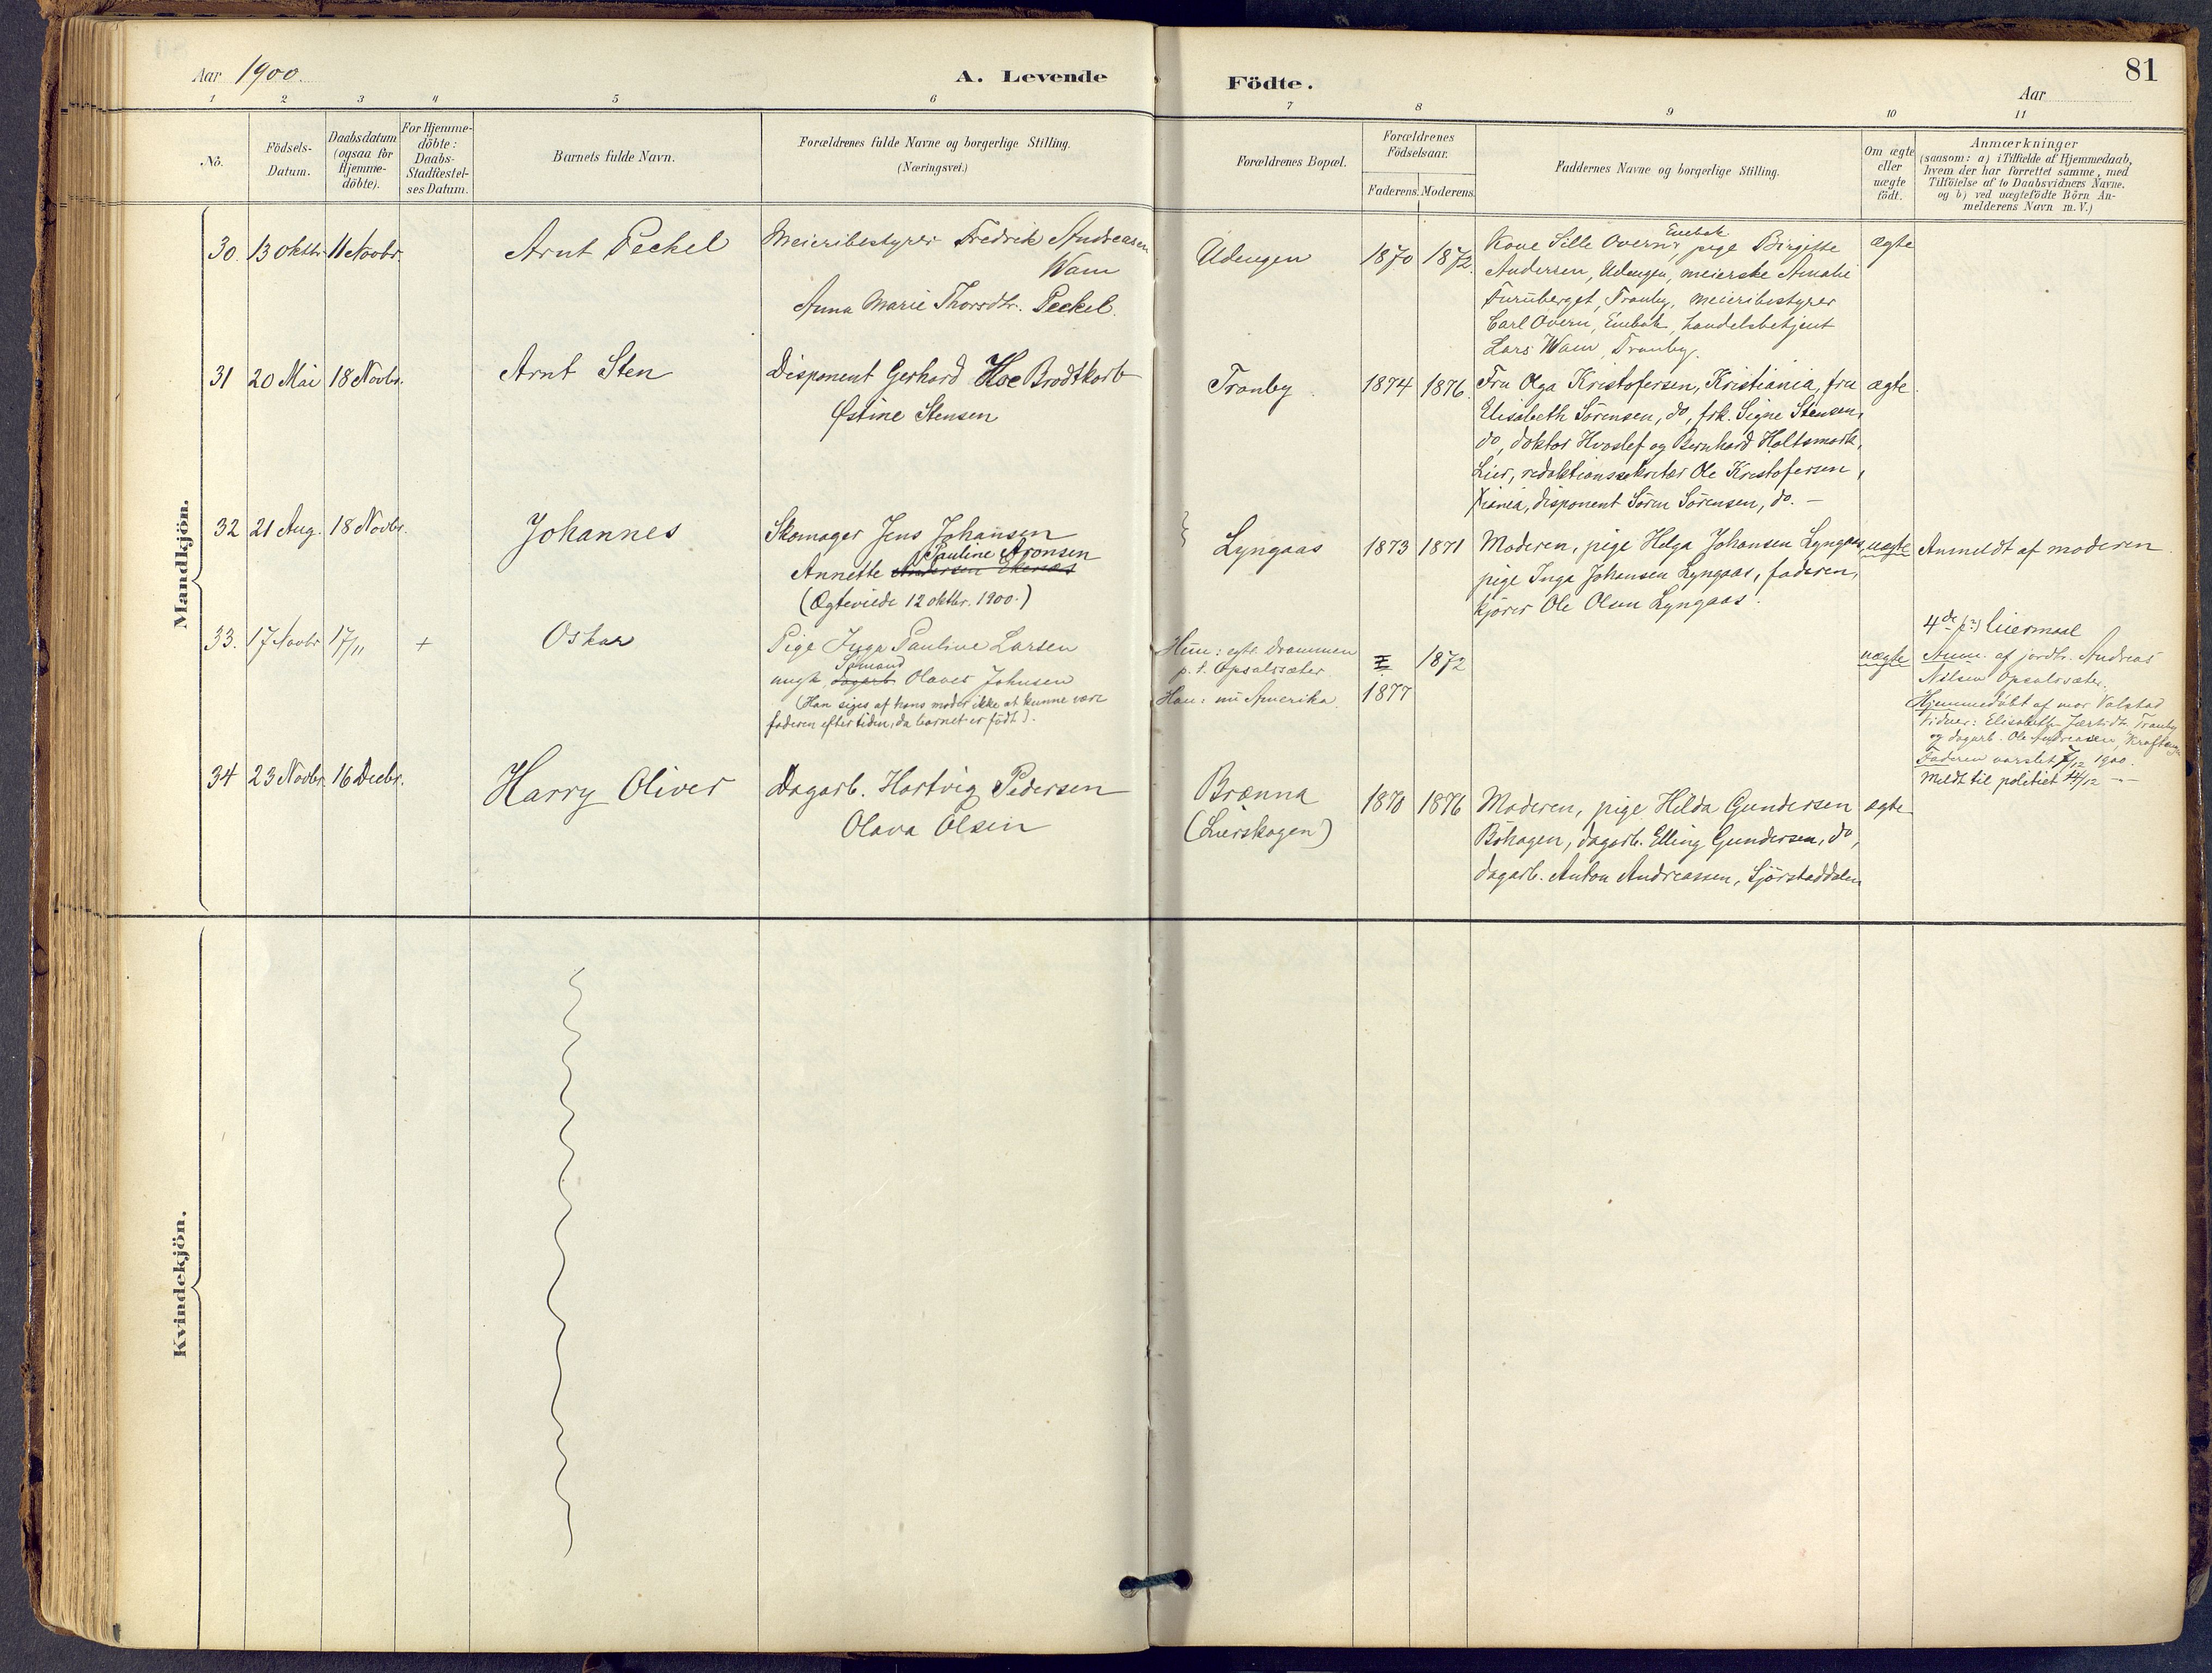 Aar 1900. A. Levende Födte. Aar 81
1 2 3 4 5 6 7 8 9 10 11
No. Födsels-Datum. Daabsdatum (ogsaa for Hjemme-döbte). For Hjemme-döbte: Daabs-Stadfæstel-ses Datum. Barnets fulde Navn. Forældrenes fulde Navne og borgerlige Stilling. (Næringsvei.) Forældrenes Bopæl. Forældrenes Födselsaar. Faderens. Moderens. Faddernes Navne og borgerlige Stilling. Om ægte eller uægte födt. Anmærkninger (saasom: a) i Tilfælde af Hjemmedaab, hvem der har forrettet samme, med Tilföielse af to Daabsvidners Navne, og b) ved uægtefödte Börn An-melderens Navn m.V.)
Mandkjön.
30. 13 Oktbr. 11 Novbr. Arnt Peckel
Meieribestyrer Fredrik Andreasen
Wam
Anna Marie Thorsdtr. Peckel.
Udengen 1870 1872.
Kone Sille Overn, Enebak pige Birgitte
Andersen, Udengen, meierske Amalie
Furuberget, Tranby, meieribestyrer
Carl Overn, Enebak, handelsbetjent
Lars Wam, Tranby.
ægte
31 20 Mai 18 Novbr. Arnt Sten
Disponent Gerhard Hoe Brodtkorb
Østine Stensen
Tranby. 1874 1876.
Fru Olga Kristofersen, Kristiania, fru
Elisabeth Sörensen, do, frk. Signe Stensen,
do, doktor Hvoslef og Bernhard Holtsmark,
Lier, redaktionssekretær Ole Kristofersen,
Xiania, disponent Sören Sörensen, do. –
ægte
32 21 Aug. 18 Novbr. Johannes
Skomager Jens Johansen
Pauline Aronsen
Annette Andersen Ekenæs
(Ægteviede 12 oktbr. 1900.)
Lyngaas 1873 1871
Moderen, pige Helga Johansen Lyngaas,
pige Inga Johansen Lyngaas, faderen,
kjörer Ole Olsen Lyngaas.
uægte Anmeldt af moderen.
33. 17 Novbr 17/11 + Oskar
Pige Inga Pauline Larsen
Sömand
ungk. dagarb. Olaves Johnsen
(Han siges af hans moder ikke at kunne være
faderen efter tiden, da barnet er födt).
Hun: egtl. Drammen
p. t. Opsalsæter
Han: nu Amerika.
1872
1877
uægte
4de leiermaal
Anm. af jordbr. Andreas
Nilsen Opsalsæter.
Hjemmedöbt af mor Valstad
Vidner: Elisabeth Tranby
og dagarb. Ole Andreasen,
Faderen varslet 7/12 1900.
Meldt til politiet 14/12 –
34 23 Novbr. 16 Decbr. Harry Oliver
Dagarb. Hartvig Pedersen
Olava Olsen
Brænna
(Lierskogen)
1870 1876
Moderen, pige Hilda Gundersen
Böhagen, dagarb. Elling Gundersen, do,
dagarb. Anton Andreassen, Sjörstaddalen
ægte
Kvindekjön.